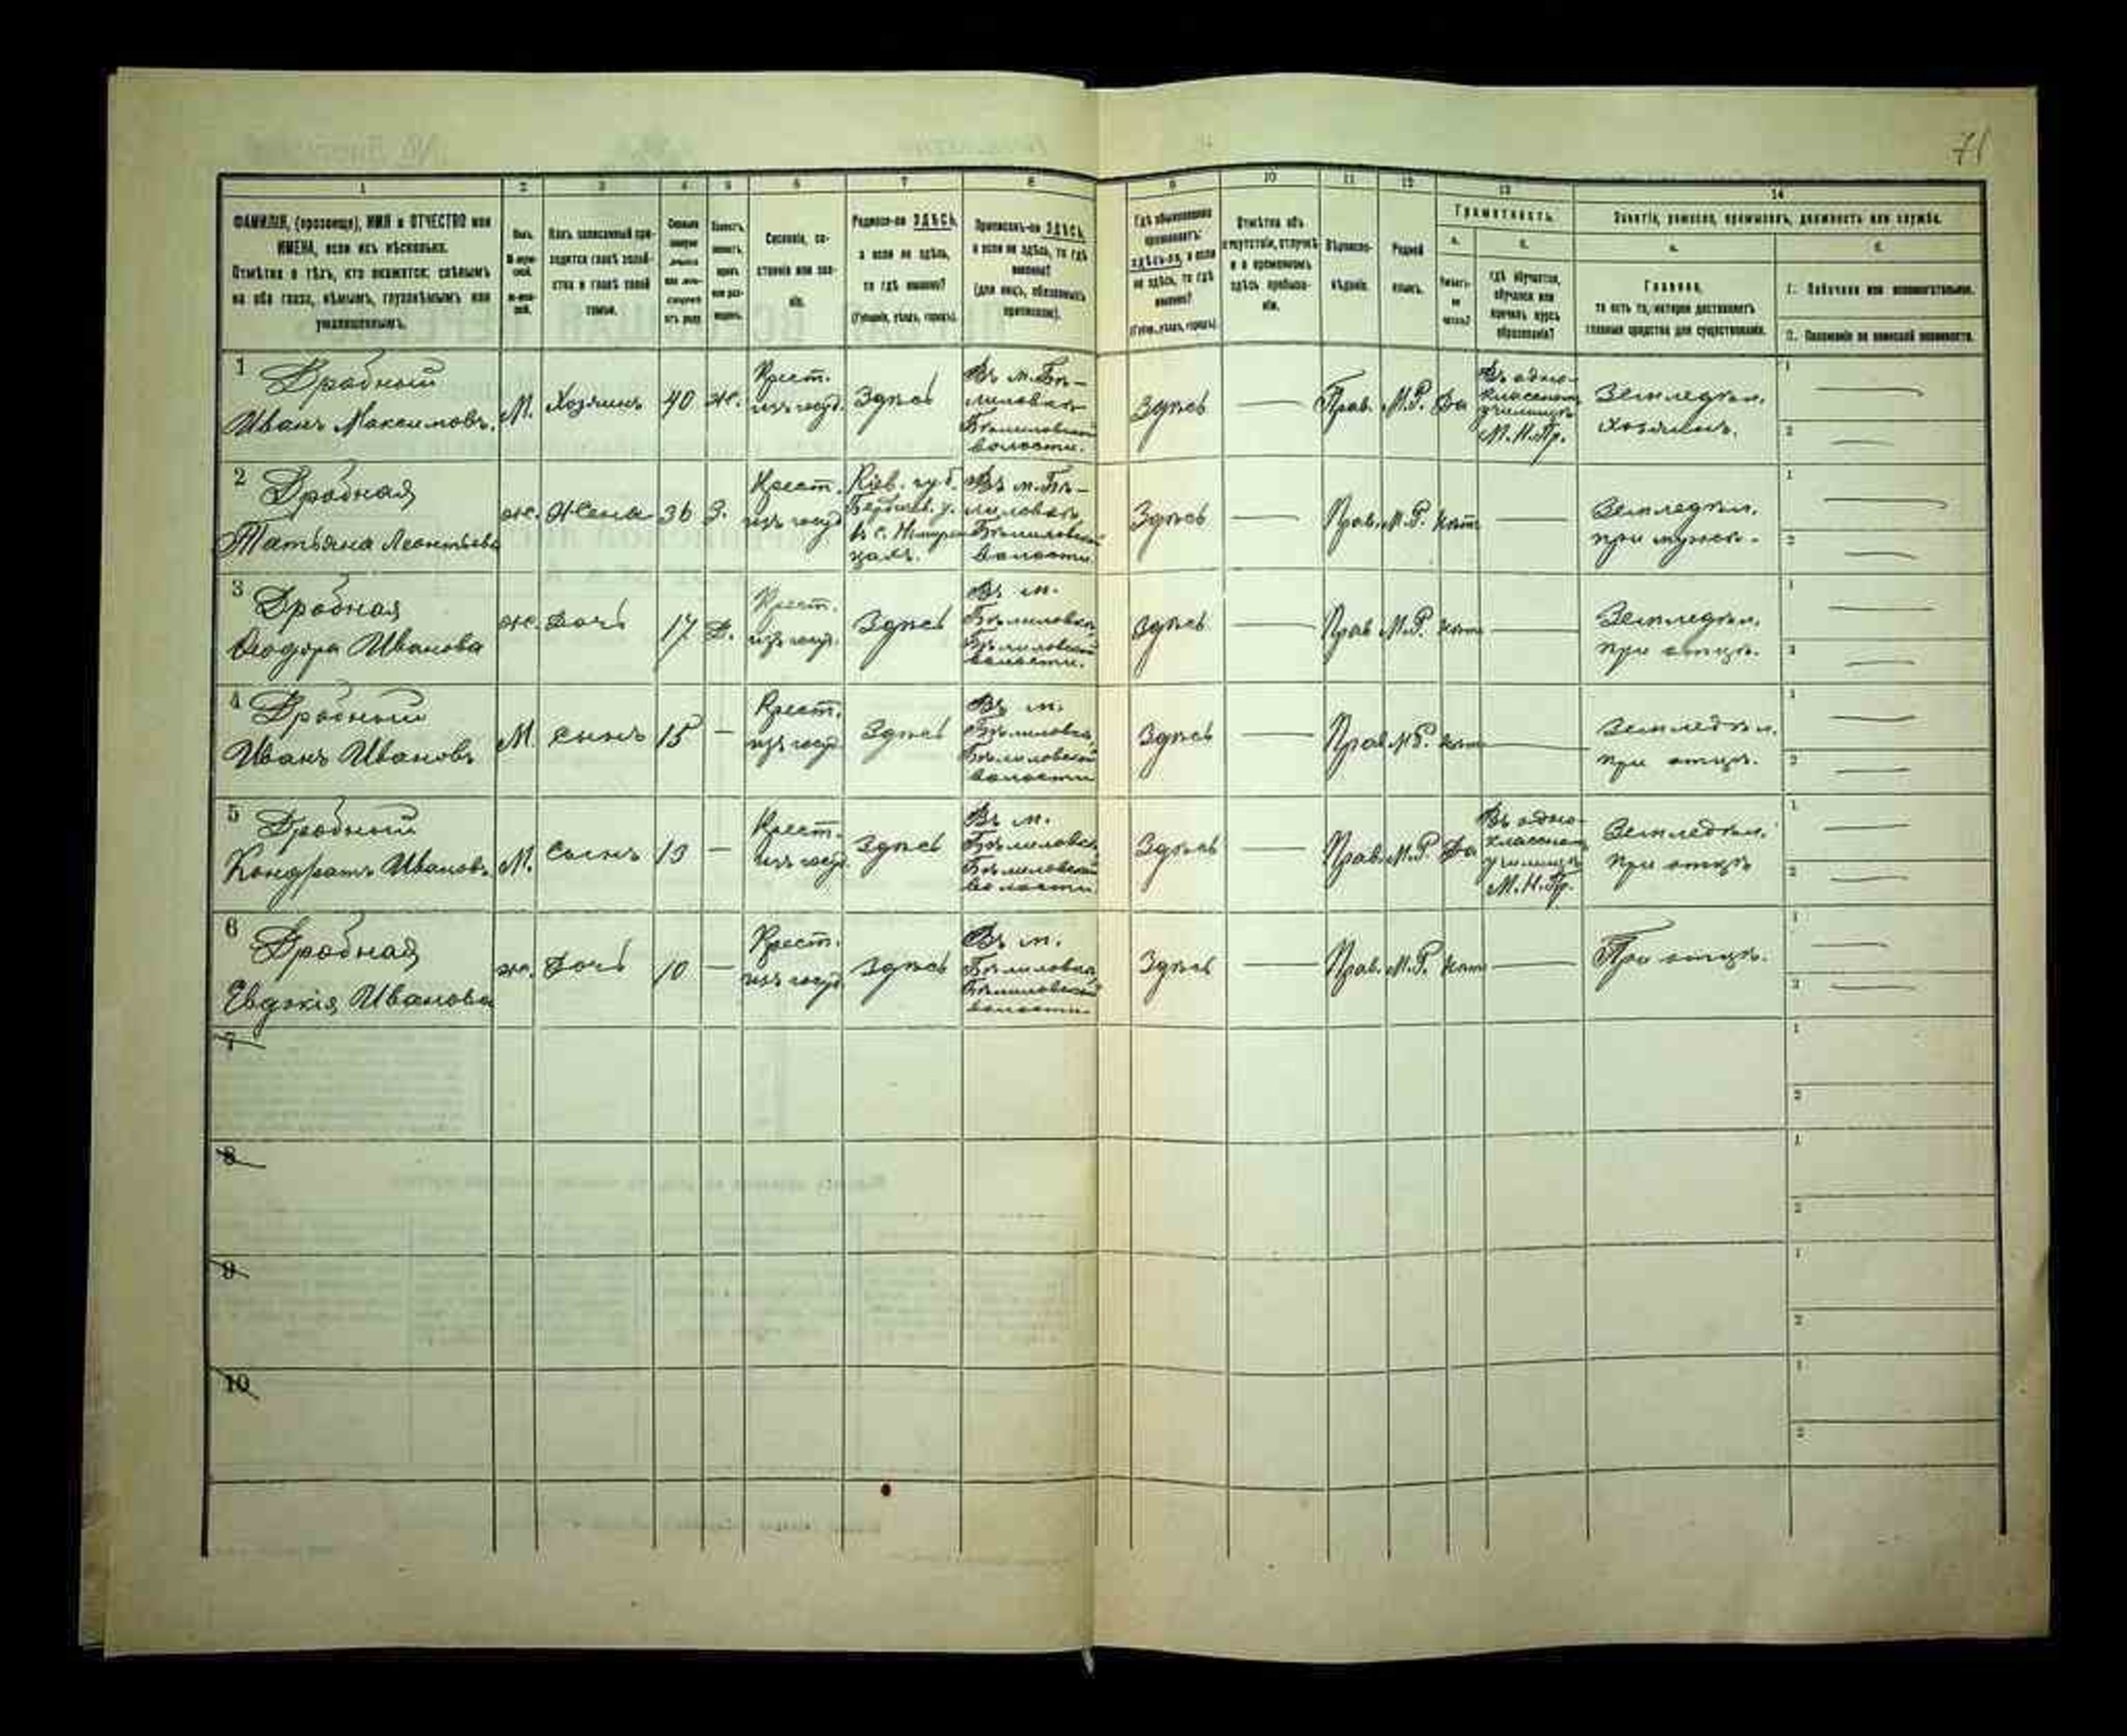 71
1 2 3 4 5 6 7 8 9 10 11 12 13 14
ФАМИЛІЯ, (прозвище), ИМЯ и ОТЧЕСТВО или
ИМЕНА, если ихъ нѣсколько.
Отмѣтка о тѣхъ, кто окажется: слѣпымъ
на оба глаза, нѣмымъ, глухонѣмымъ или
умалишеннымъ.
Какъ записанный при-
ходится главѣ хозяй-
ства и главѣ своей
семьи.
Сословіе, со-
стояніе или зва-
ніе.
Родился-ли ЗДѢСЬ,
а если не здѣсь,
то гдѣ именно?
(Губернія, уѣздъ, городъ).
Приписанъ-ли ЗДѢСЬ,
а если не здѣсь, то гдѣ
именно?
(для лицъ, обязанныхъ
припискою).
Гдѣ обыкновенно
проживаетъ:
здѣсь-ли, а если
не здѣсь, то гдѣ
именно?
(Губер., уѣздъ, городъ).
Отмѣтка объ
отсутствіи, отлучкѣ
и о временномъ
здѣсь пребыва-
ніи.
Вѣроиспо-
вѣданіе.
Родной
языкъ.
Грамотность.
а.
Умѣетъ-
ли
читать?
б.
гдѣ обучается,
обучался или
кончилъ курсъ
образованія?
Занятіе, ремесло, промыселъ, должность или служба.
а.
Главное,
то есть то, которое доставляетъ
главныя средства для существованія.
б.
1. Побочное или вспомогательное.
2. Положеніе по воинской повинности.
1 Дробный
Иванъ Максимовъ.
М. Хозяинъ 40 ж.
Крест.
изъ госуд.
Здѣсь
Въ м. Бѣ-
лиловкѣ
Бѣлиловской
волости.
Здѣсь — Прав. М.Р. Да
Въ одно-
классномъ
училищѣ
М.Н.Пр.
Земледѣл.
хозяинъ.
1 —
2 —
2 Дробная
Татьяна Леонтьева
ж. Жена 36 З.
Крест.
изъ госуд
Кіев. губ.
Бердичев. у.
въ с.
Въ м. Бѣ-
лиловкѣ
Бѣлиловской
волости.
Здѣсь — Прав. М.Р. нѣтъ —
Земледѣл.
при мужѣ.
1 —
2 —
3 Дробная
Ѳеодора Иванова
ж. Дочь 17 Д.
Крест.
изъ госуд.
Здѣсь
Въ м.
Бѣлиловкѣ,
Бѣлиловской
волости.
Здѣсь — Прав М.Р. нѣтъ —
Земледѣл.
при отцѣ.
1 —
2 —
4 Дробный
Иванъ Ивановъ
М. сынъ 15 —
Крест.
изъ госуд
Здѣсь
Въ м.
Бѣлиловкѣ,
Бѣлиловской
волости
Здѣсь — Прав. М.Р. нѣтъ —
Земледѣл.
при отцѣ.
1 —
2 —
5 Дробный
Кондратъ Ивановъ
М. Сынъ 13 —
Крест.
изъ госуд.
Здѣсь
Въ м.
Бѣлиловкѣ,
Бѣлиловской
волости
Здѣсь — Прав. М.Р. Да
Въ одно-
классномъ
училищѣ
М.Н.Пр.
Земледѣл.
при отцѣ
1 —
2 —
6 Дробная
Евдокія Иванова
ж. Дочь 10 —
Крест.
изъ госуд
Здѣсь
Въ м.
Бѣлиловкѣ,
Бѣлиловской
волости.
Здѣсь — Прав. М.Р. нѣтъ —
При отцѣ.
1 —
2 —
7
1
2
8
1
2
9
1
2
10
1
2